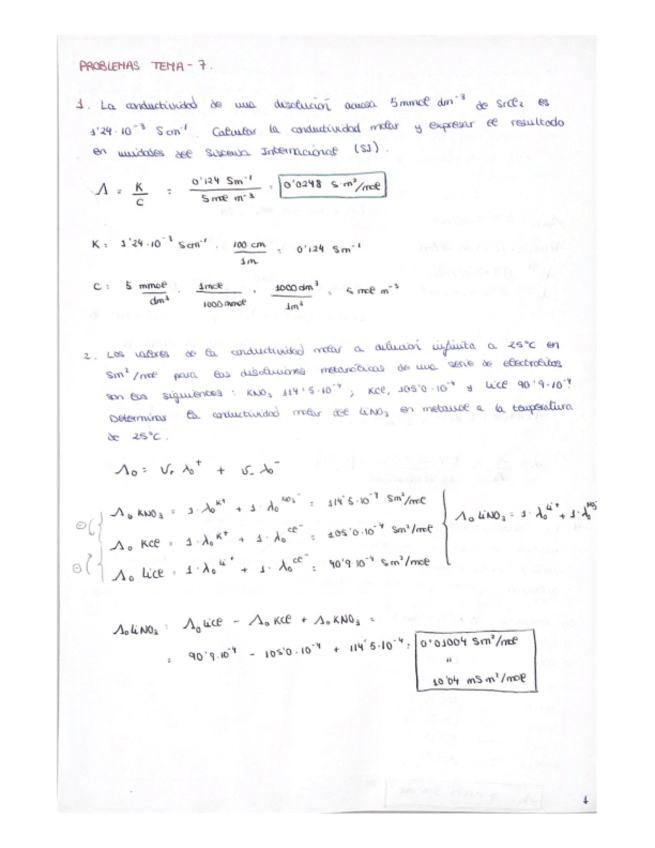 PROBLEMAS TEMA-7.
1. La conductividad de una disolución acuosa 5 mmol dm⁻³ de SrCl₂ es
1'24·10⁻³ S cm⁻¹. Calcular la conductividad molar y expresar el resultado
en unidades del Sistema Internacional (SI).
Λ = K/C = 0'124 Sm⁻¹ / 5 mol m⁻³ = 0'0248 S·m²/mol
K: 1'24·10⁻³ S cm⁻¹ · 100 cm / 1m = 0'124 Sm⁻¹
C: 5 mmol/dm³ · 1mol/1000 mmol · 1000 dm³/1m³ = 5 mol m⁻³
2. Los valores de la conductividad molar a dilución infinita a 25ºC en
Sm²/mol para las disoluciones metanólicas de una serie de electrolitos
son los siguientes: KNO₃ 114'5·10⁻⁴; KCl, 105'0·10⁻⁴ y LiCl 90'9·10⁻⁴
Determinar la conductividad molar del LiNO₃ en metanol a la temperatura
de 25ºC.
Λ₀ = ν₊ λ₀⁺ + ν₋ λ₀⁻
Λ₀ KNO₃ = 1·λ₀ᴷ⁺ + 1·λ₀ᴺᴼ³⁻ = 114'5·10⁻⁴ Sm²/mol
Λ₀ LiNO₃ = 1·λ₀ᴸⁱ⁺ + 1·λ₀
Λ₀ KCl = 1·λ₀ᴷ⁺ + 1·λ₀ᶜˡ⁻ = 105'0·10⁻⁴ Sm²/mol
Λ₀ LiCl = 1·λ₀ᴸⁱ⁺ + 1·λ₀ᶜˡ⁻ = 90'9·10⁻⁴ Sm²/mol
Λ₀ LiNO₃ = Λ₀ LiCl - Λ₀ KCl + Λ₀ KNO₃ =
= 90'9·10⁻⁴ - 105'0·10⁻⁴ + 114'5·10⁻⁴ = 0'01004 Sm²/mol
"
10'04 mS m²/mol
1